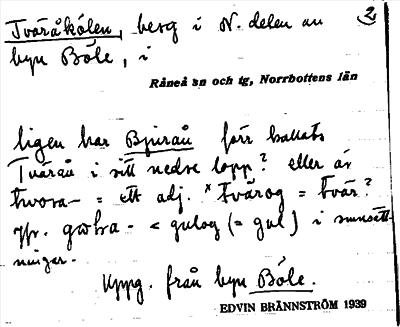 Tväråkölen, berg i N. delen av 2
byn Böle, i
Råneå sn och tg, Norrbottens län
ligen har Bjurån förr kallats
Tvärån i sitt nedre lopp? eller är
tværa- = ett adj. *tvärog = tvär?
jfr. gωlωa- < gulog (= gul) i sunsätt-
ningar.
Uppg. från byn Böle.
EDVIN BRÄNNSTRÖM 1939